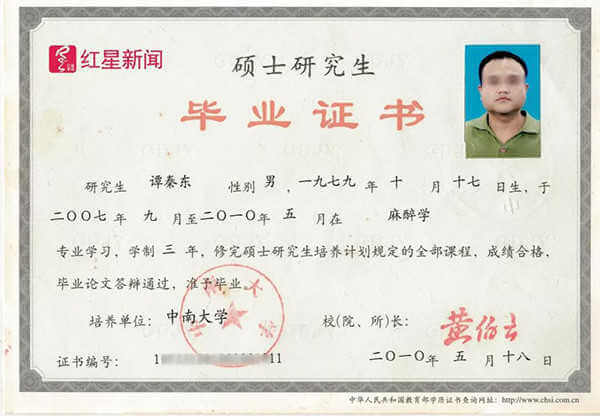 红星新闻
硕士研究生
毕业证书
研究生 谭秦东 性别 男,一九七九 年 十 月 十七 日生,于
二〇〇七年 九 月至二〇一〇年 五 月在 麻醉学
专业学习,学制 三 年,修完硕士研究生培养计划规定的全部课程,成绩合格,
毕业论文答辩通过,准予毕业。
培养单位: 中南大学 校(院、所)长: 黄伯云
证书编号: 1 11 二〇一〇年 五 月 十八 日
中华人民共和国教育部学历证书查询网址: http://www.chsi.com.cn